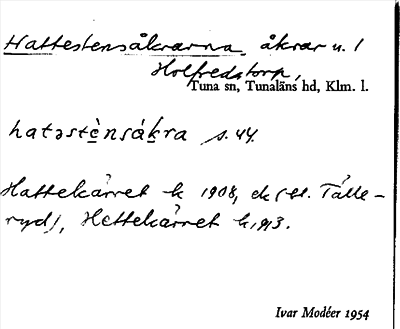 Hattestensåkrarna, åkrar u. /
Holfredstorp,
Tuna sn, Tunaläns hd, Klm. l.
hatəstènsákra s. 44.
Hattekärret k 1908, ek (st. Tålle-
ryd), Hettekärret k, 1913.
Ivar Modéer 1954